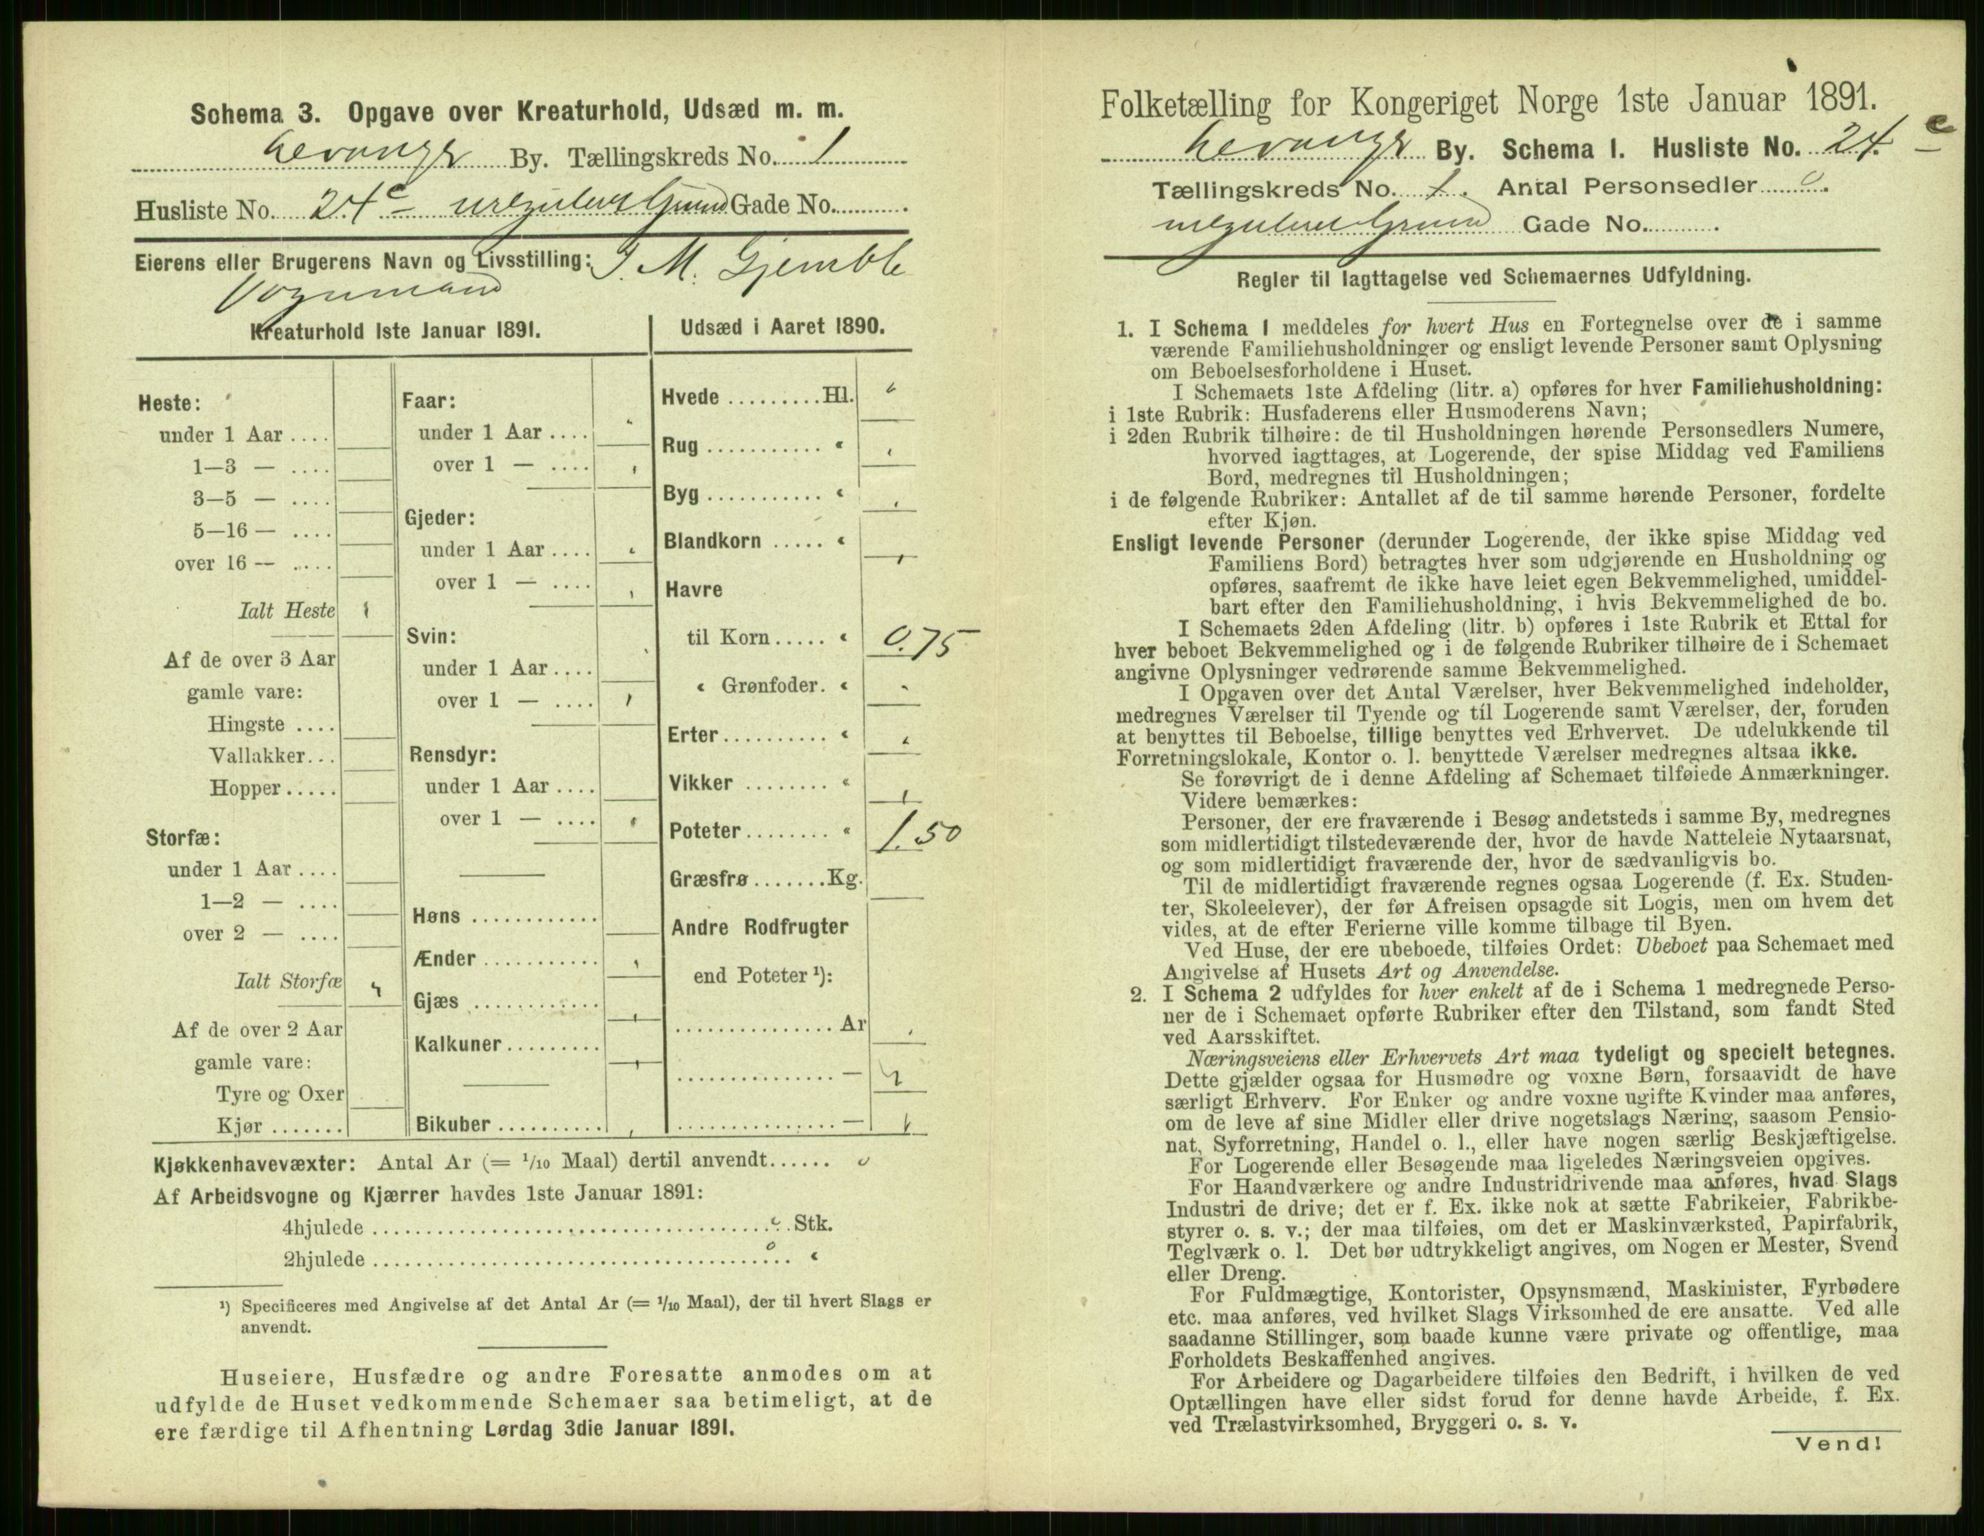 Schema 3. Opgave over Kreaturhold, Udsæd m. m.
Levanger By. Tællingskreds No. 1
Husliste No. 24c ureguleret Grund Gade No.
Eierens eller Brugerens Navn og Livsstilling: J. M. Gjemble
Vognmand
Kreaturhold 1ste Januar 1891.
Heste:
under 1 Aar ....
1—3 — ....
3—5 — ....
5—16 — ....
over 16 — ....
Ialt Heste
Af de over 3 Aar
gamle vare:
Hingste ....
Vallakker...
Hopper.....
Storfæ:
under 1 Aar....
1—2 — ....
over 2 — ....
Ialt Storfæ
Af de over 2 Aar
gamle vare:
Tyre og Oxer
Kjør.......
Faar:
under 1 Aar....
over 1 — ....
Gjeder:
under 1 Aar....
over 1 — ....
Svin:
under 1 Aar....
over 1 — ....
Rensdyr:
under 1 Aar....
over 1 — ....
Høns ............
Ænder...........
Gjæs ............
Kalkuner.........
Bikuber..........
Udsæd i Aaret 1890.
Hvede .........Hl. "
Rug ........... "
Byg ........... "
Blandkorn ..... "
Havre
til Korn..... " 0.75
" Grønfoder. " "
Erter.......... " "
Vikker ........ "
Poteter........ " 1.50
Græsfrø.......Kg.
Andre Rodfrugter
end Poteter ¹):
...............Ar
...............—
...............—
Kjøkkenhavevæxter: Antal Ar (= 1/10 Maal) dertil anvendt......
Af Arbeidsvogne og Kjærrer havdes 1ste Januar 1891:
4hjulede .......... Stk.
2hjulede .......... "
¹) Specificeres med Angivelse af det Antal Ar (= 1/10 Maal), der til hvert Slags er
anvendt.
Huseiere, Husfædre og andre Foresatte anmodes om at
udfylde de Huset vedkommende Schemaer saa betimeligt, at de
ere færdige til Afhentning Lørdag 3die Januar 1891.
Folketælling for Kongeriget Norge 1ste Januar 1891.
Levanger By. Schema 1. Husliste No. 24 c
Tællingskreds No. 1. Antal Personsedler 0.
ureguleret Grund Gade No.
Regler til Iagttagelse ved Schemaernes Udfyldning.
1. I Schema 1 meddeles for hvert Hus en Fortegnelse over de i samme
værende Familiehusholdninger og ensligt levende Personer samt Oplysning
om Beboelsesforholdene i Huset.
I Schemaets 1ste Afdeling (litr. a) opføres for hver Familiehusholdning:
i 1ste Rubrik: Husfaderens eller Husmoderens Navn;
i 2den Rubrik tilhøire: de til Husholdningen hørende Personsedlers Numere,
hvorved iagttages, at Logerende, der spise Middag ved Familiens
Bord, medregnes til Husholdningen;
i de følgende Rubriker: Antallet af de til samme hørende Personer, fordelte
efter Kjøn.
Ensligt levende Personer (derunder Logerende, der ikke spise Middag ved
Familiens Bord) betragtes hver som udgjørende en Husholdning og
opføres, saafremt de ikke have leiet egen Bekvemmelighed, umiddel-
bart efter den Familiehusholdning, i hvis Bekvemmelighed de bo.
I Schemaets 2den Afdeling (litr. b) opføres i 1ste Rubrik et Ettal for
hver beboet Bekvemmelighed og i de følgende Rubriker tilhøire de i Schemaet
angivne Oplysninger vedrørende samme Bekvemmelighed.
I Opgaven over det Antal Værelser, hver Bekvemmelighed indeholder,
medregnes Værelser til Tyende og til Logerende samt Værelser, der, foruden
at benyttes til Beboelse, tillige benyttes ved Erhvervet. De udelukkende til
Forretningslokale, Kontor o. l. benyttede Værelser medregnes altsaa ikke.
Se forøvrigt de i denne Afdeling af Schemaet tilføiede Anmærkninger.
Videre bemærkes:
Personer, der ere fraværende i Besøg andetsteds i samme By, medregnes
som midlertidigt tilstedeværende der, hvor de havde Natteleie Nytaarsnat,
og som midlertidigt fraværende der, hvor de sædvanligvis bo.
Til de midlertidigt fraværende regnes ogsaa Logerende (f. Ex. Studen-
ter, Skoleelever), der før Afreisen opsagde sit Logis, men om hvem det
vides, at de efter Ferierne ville komme tilbage til Byen.
Ved Huse, der ere ubeboede, tilføies Ordet: Ubeboet paa Schemaet med
Angivelse af Husets Art og Anvendelse.
2. I Schema 2 udfyldes for hver enkelt af de i Schema 1 medregnede Perso-
ner de i Schemaet opførte Rubriker efter den Tilstand, som fandt Sted
ved Aarsskiftet.
Næringsveiens eller Erhvervets Art maa tydeligt og specielt betegnes.
Dette gjælder ogsaa for Husmødre og voxne Børn, forsaavidt de have
særligt Erhverv. For Enker og andre voxne ugifte Kvinder maa anføres,
om de leve af sine Midler eller drive nogetslags Næring, saasom Pensio-
nat, Syforretning, Handel o. l., eller have nogen særlig Beskjæftigelse.
For Logerende eller Besøgende maa ligeledes Næringsveien opgives.
For Haandværkere og andre Industridrivende maa anføres, hvad Slags
Industri de drive; det er f. Ex. ikke nok at sætte Fabrikeier, Fabrikbe-
styrer o. s. v.; der maa tilføies, om det er Maskinværksted, Papirfabrik,
Teglværk o. l. Det bør udtrykkeligt angives, om Nogen er Mester, Svend
eller Dreng.
For Fuldmægtige, Kontorister, Opsynsmænd, Maskinister, Fyrbødere
etc. maa anføres, ved hvilket Slags Virksomhed de ere ansatte. Ved alle
saadanne Stillinger, som baade kunne være private og offentlige, maa
Forholdets Beskaffenhed angives.
For Arbeidere og Dagarbeidere tilføies den Bedrift, i hvilken de ved
Optællingen have eller sidst forud for denne havde Arbeide, f. Ex.
ved Trælastvirksomhed, Bryggeri o. s. v.
Vend!